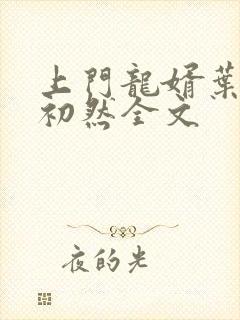 上門龍婿葉
初然全文
夜的光